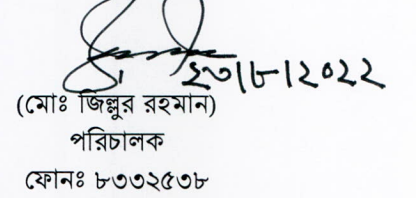 ২৩|৮|২০২২
(মোঃ জিল্লুর রহমান)
পরিচালক
ফোনঃ ৮৩৩২৫৩৮